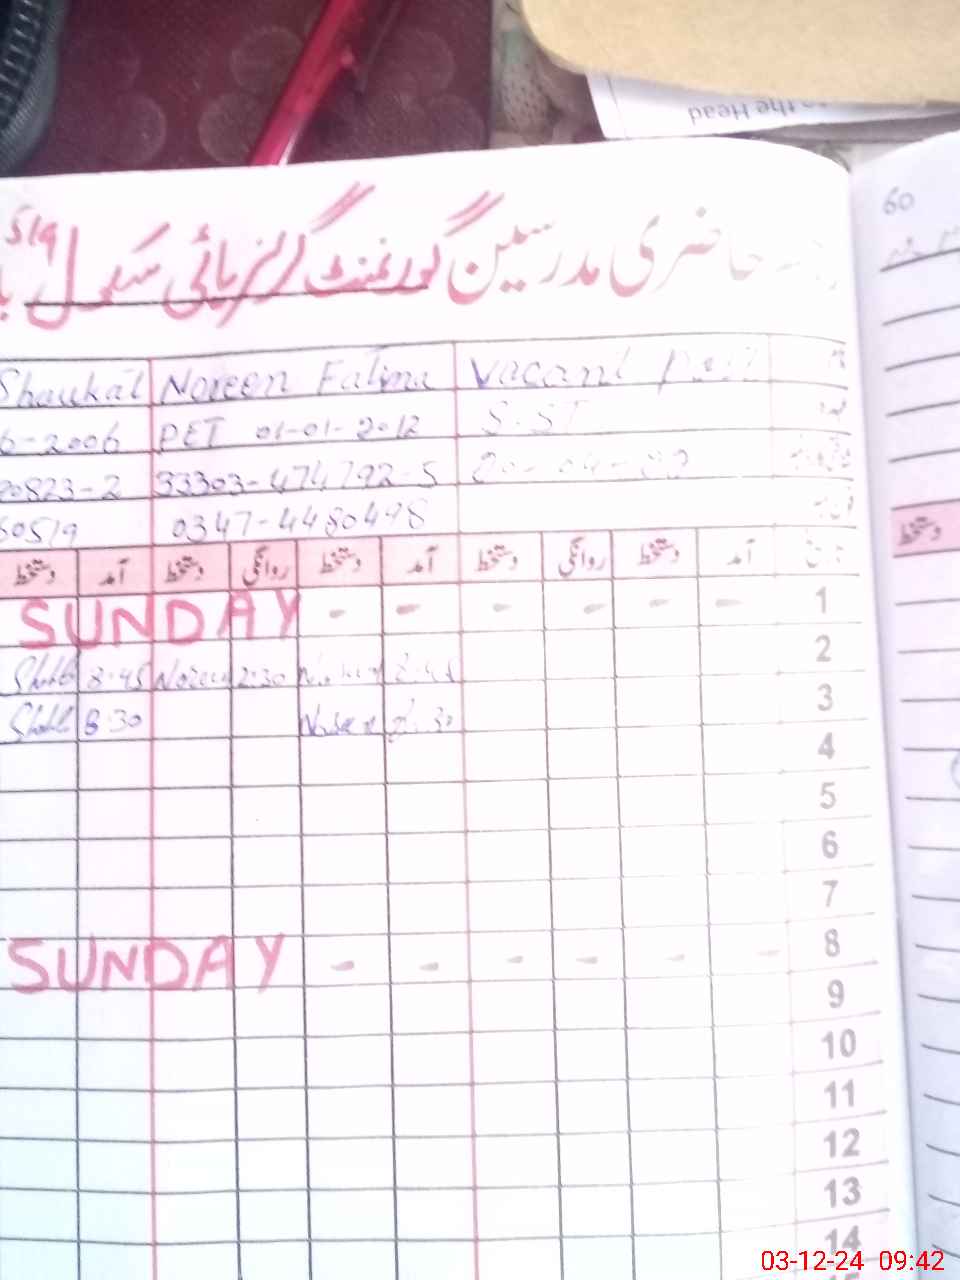 to the Head
60
519
حاضری مدرسین گورنمنٹ گرلز ہائی سکول
Shaukat Noreen Fatima Vacant Post
6-2006 PET 01-01-2012 S.ST
20823-2 33303-474792-5
60519 0347-4480498
دستخط آمد دستخط روانگی دستخط آمد دستخط روانگی دستخط آمد
دستخط
SUNDAY - - - - - - 1
8:45 Noreen 2:30 8:45 2
8:30 Noreen 8:30 3
4
5
6
7
SUNDAY - - - - - - 8
9
10
11
12
13
14
03-12-24 09:42